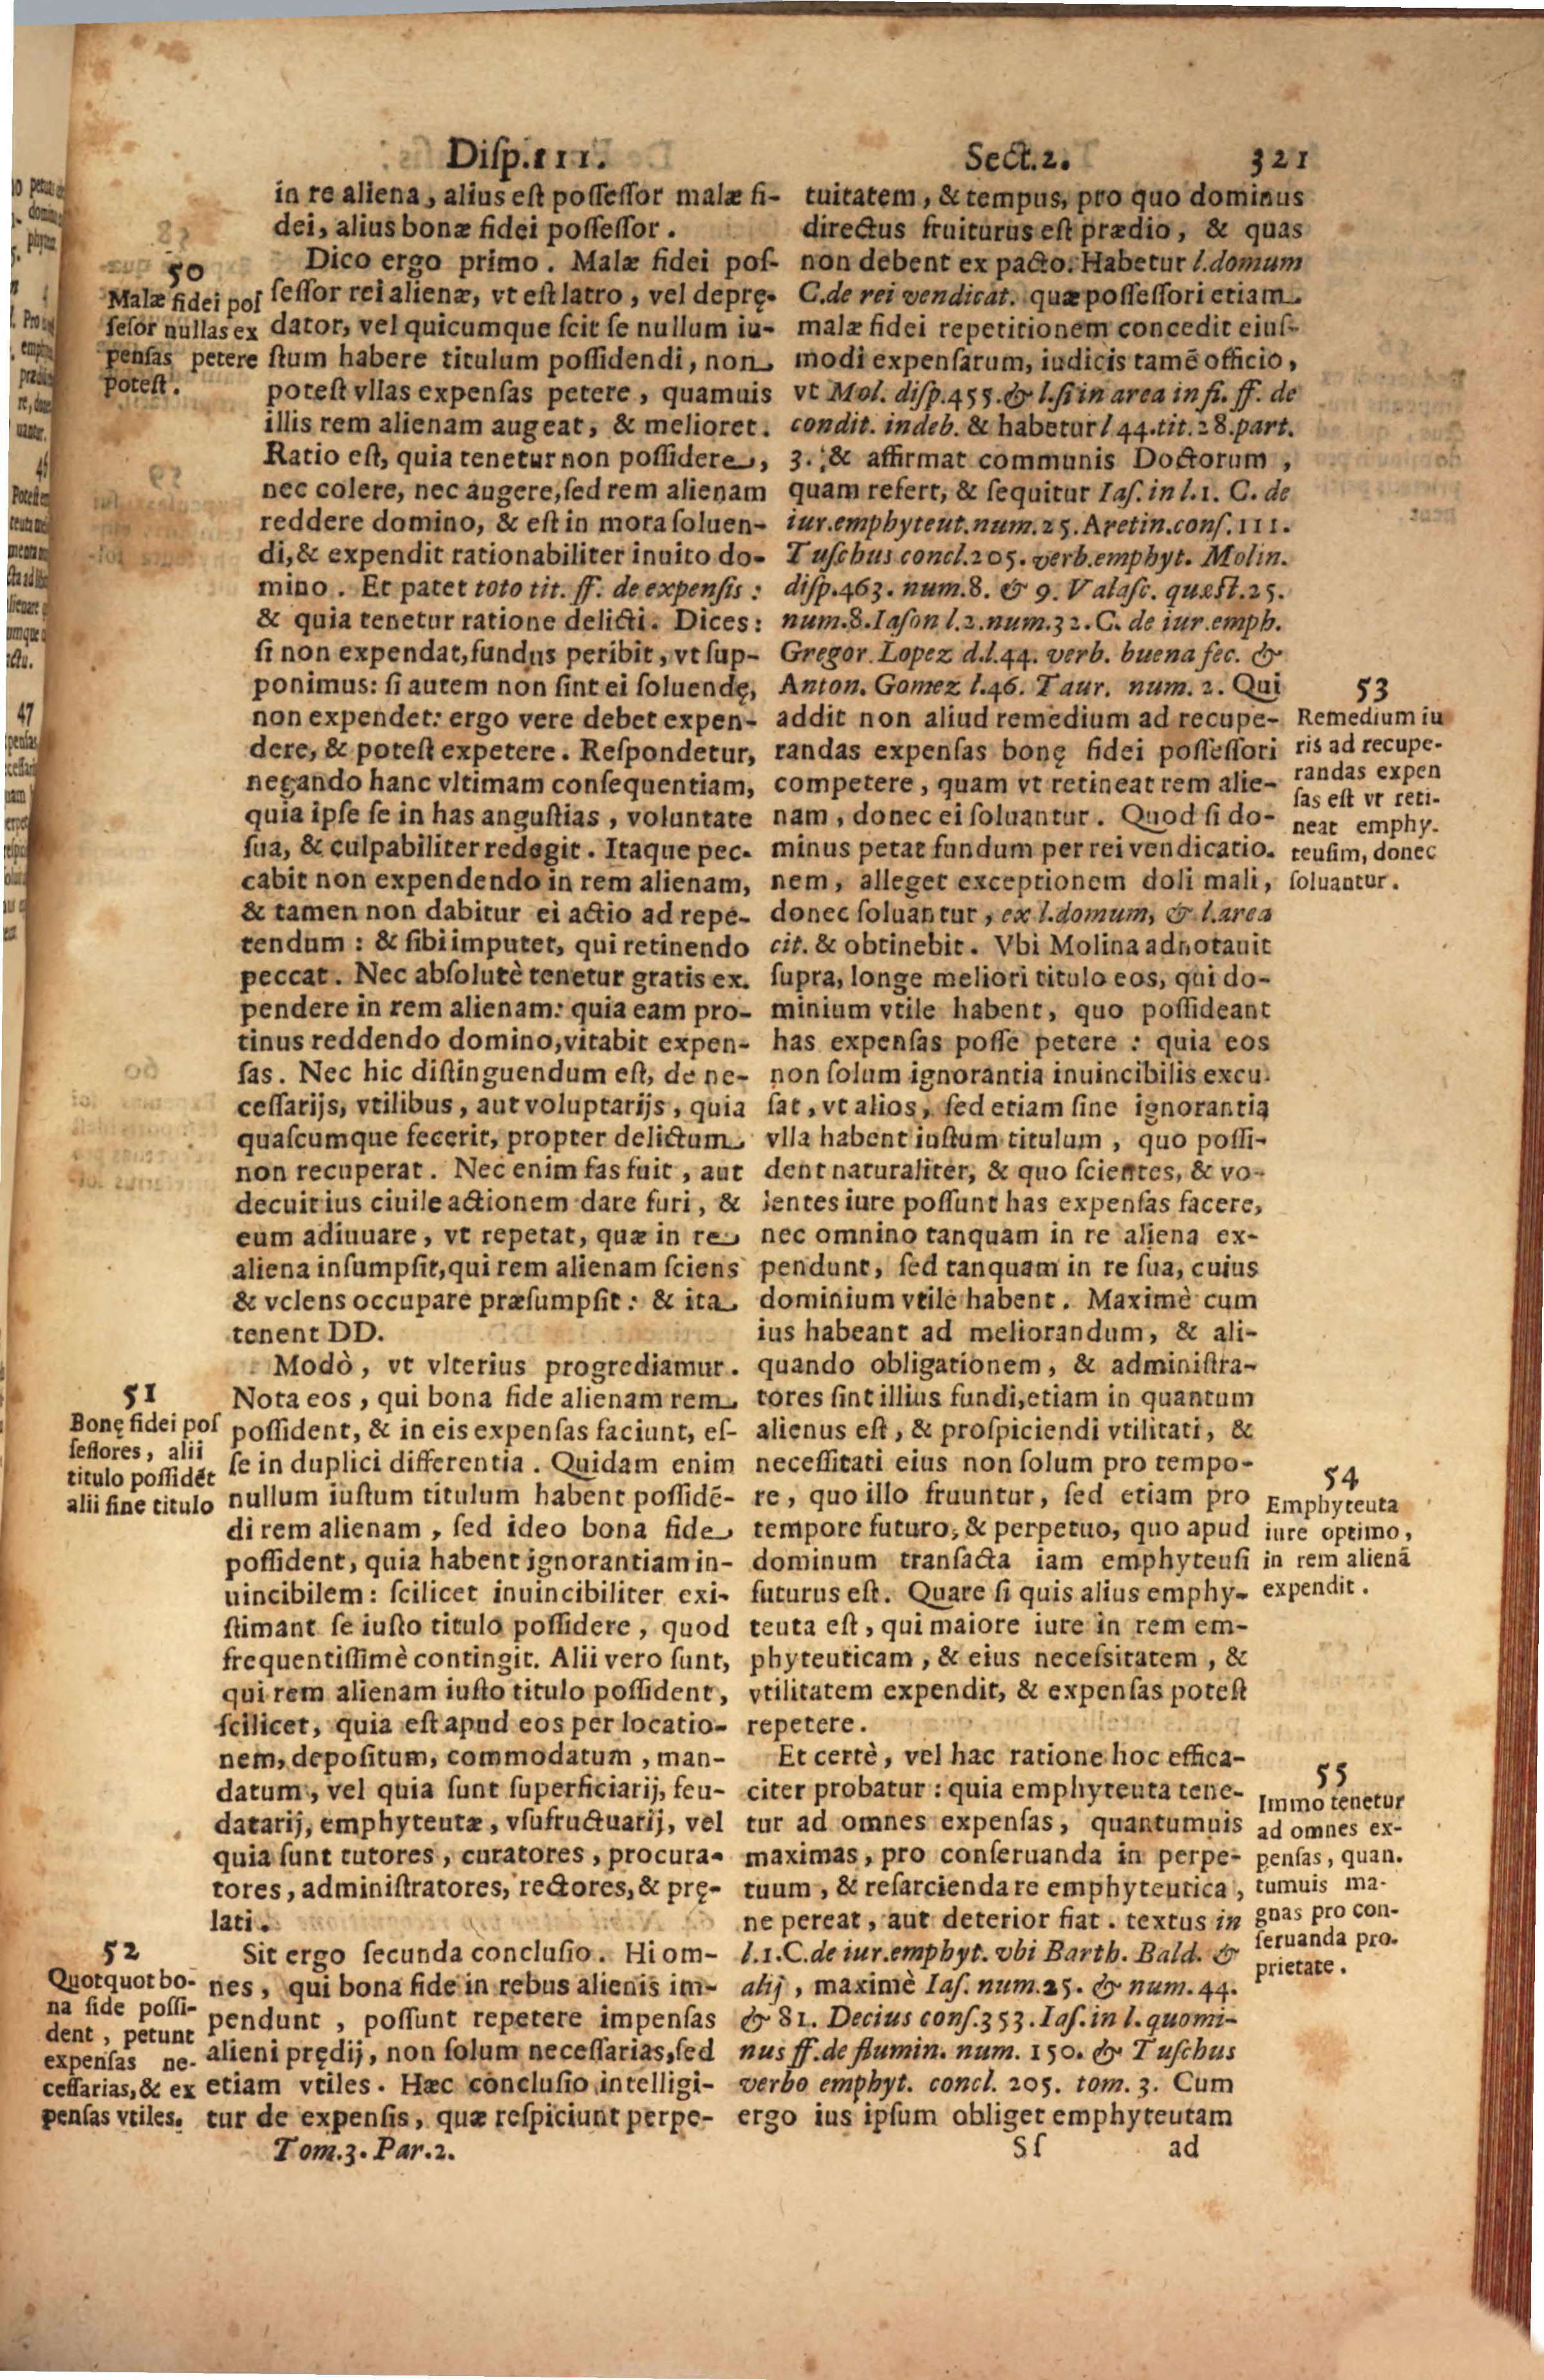 Disp. III. Sect. 2. 321
in re aliena, alius est possessor malæ fi-
dei, alius bonæ fidei possessor.
50
Malæ fidei pos
sesor nullas ex
pensas petere
potest.
Dico ergo primo. Malæ fidei pos-
sessor rei alienæ, vt est latro, vel depręe-
dator, vel quicumque scit se nullum iu-
stum habere titulum possidendi, non
potest vllas expensas petere, quamuis
illis rem alienam augeat, & melioret.
Ratio est, quia tenetur non possidere,
nec colere, nec augere, sed rem alienam
reddere domino, & est in mora soluen-
di, & expendit rationabiliter inuito do-
mino. Et patet toto tit. ff. de expensis:
& quia tenetur ratione delicti. Dices:
si non expendat, fundus peribit, vt sup-
ponimus: si autem non sint ei soluendę,
non expendet: ergo vere debet expen-
dere, & potest expetere. Respondetur,
negando hanc vltimam consequentiam,
quia ipse se in has angustias, voluntate
sua, & culpabiliter redegit. Itaque pec-
cabit non expendendo in rem alienam,
& tamen non dabitur ei actio ad repe-
tendum: & sibi imputet, qui retinendo
peccat. Nec absolutè tenetur gratis ex.
pendere in rem alienam: quia eam pro-
tinus reddendo domino, vitabit expen-
sas. Nec hic distinguendum est, de ne-
cessarijs, vtilibus, aut voluptarijs, quia
quascumque fecerit, propter delictum
non recuperat. Nec enim fas fuit, aut
decuit ius ciuile actionem dare furi, &
eum adiuuare, vt repetat, quæ in re
aliena insumpsit, qui rem alienam sciens
& vclens occupare præsumpsit: & ita
tenent DD.
51
Bonę fidei pos
sessores, alii
titulo possidẽt
alii sine titulo
Modò, vt vlterius progrediamur.
Nota eos, qui bona fide alienam rem
possident, & in eis expensas faciunt, es-
se in duplici differentia. Quidam enim
nullum iustum titulum habent possidẽ-
di rem alienam, sed ideo bona fide
possident, quia habent ignorantiam in-
uincibilem: scilicet inuincibiliter exi-
stimant se iusto titulo possidere, quod
frequentissimè contingit. Alii vero sunt,
qui rem alienam iusto titulo possident,
scilicet, quia est apud eos per locatio-
nem, depositum, commodatum, man-
datum, vel quia sunt superficiarij, feu-
datarij, emphyteutæ, vsufructuarij, vel
quia sunt tutores, curatores, procura-
tores, administratores, rectores, & prę-
lati.
52
Quotquot bo-
na fide possi-
dent, petunt
expensas ne-
cessarias, & ex
pensas vtiles.
Sit ergo secunda conclusio. Hi om-
nes, qui bona fide in rebus alienis im-
pendunt, possunt repetere impensas
alieni prędij, non solum necessarias, sed
etiam vtiles. Hæc conclusio intelligi-
tur de expensis, quæ respiciunt perpe-
Tom. 3. Par. 2.
tuitatem, & tempus, pro quo dominus
directus fruiturus est prædio, & quas
non debent ex pacto. Habetur l. domum
C. de rei vendicat. quæ possessori etiam
malæ fidei repetitionem concedit eius-
modi expensarum, iudicis tamẽ officio,
vt Mol. disp. 455. & l. si in area in fi. ff. de
condit. indeb. & habetur l 44. tit. 28. part.
3. & affirmat communis Doctorum,
quam refert, & sequitur Ias. in l. 1. C. de
iur. emphyteut. num. 25. Aretin. cons. 111.
Tuschus concl. 205. verb. emphyt. Molin.
disp. 463. num. 8. & 9. Valasc. quæst. 25.
num. 8. Iason l. 2. num. 32. C. de iur. emph.
Gregor. Lopez d. l. 44. verb. buena fec. &
Anton. Gomez l. 46. Taur. num. 2. Qui
addit non aliud remedium ad recupe-
randas expensas bonę fidei possessori
competere, quam vt retineat rem alie-
nam, donec ei soluantur. Quod si do-
minus petat fundum per rei vendicatio.
nem, alleget exceptionem doli mali,
donec soluantur, ex l. domum, & l. area
cit. & obtinebit. Vbi Molina adnotauit
supra, longe meliori titulo eos, qui do-
minium vtile habent, quo possideant
has expensas posse petere: quia eos
non solum ignorantia inuincibilis excu.
sat, vt alios, sed etiam sine ignorantia
vlla habent iustum titulum, quo possi-
dent naturaliter, & quo scientes, & vo-
lentes iure possunt has expensas facere,
nec omnino tanquam in re aliena ex-
pendunt, sed tanquam in re sua, cuius
dominium vtile habent. Maximè cum
ius habeant ad meliorandum, & ali-
quando obligationem, & administra-
tores sint illius fundi, etiam in quantum
alienus est, & prospiciendi vtilitati, &
necessitati eius non solum pro tempo-
re, quo illo fruuntur, sed etiam pro
tempore futuro, & perpetuo, quo apud
dominum transacta iam emphyteusi
futurus est. Quare si quis alius emphy-
teuta est, qui maiore iure in rem em-
phyteuticam, & eius necessitatem, &
vtilitatem expendit, & expensas potest
repetere.
53
Remedium iu
ris ad recupe-
randas expen
sas est vt reti-
neat emphy-
teusim, donec
soluantur.
54
Emphyteuta
iure optimo,
in rem alienã
expendit.
Et certè, vel hac ratione hoc effica-
citer probatur: quia emphyteuta tene-
tur ad omnes expensas, quantumuis
maximas, pro conseruanda in perpe-
tuum, & resarcienda re emphyteutica,
ne pereat, aut deterior fiat. textus in
l. 1. C. de iur. emphyt. vbi Barth. Bald. &
alij, maximè Ias. num. 25. & num. 44.
& 81. Decius cons. 353. Ias. in l. quomi-
nus ff. de flumin. num. 150. & Tuschus
verbo emphyt. concl. 205. tom. 3. Cum
ergo ius ipsum obliget emphyteutam
55
Immo tenetur
ad omnes ex-
pensas, quan.
tumuis ma-
gnas pro con-
seruanda pro.
prietate.
Ss ad